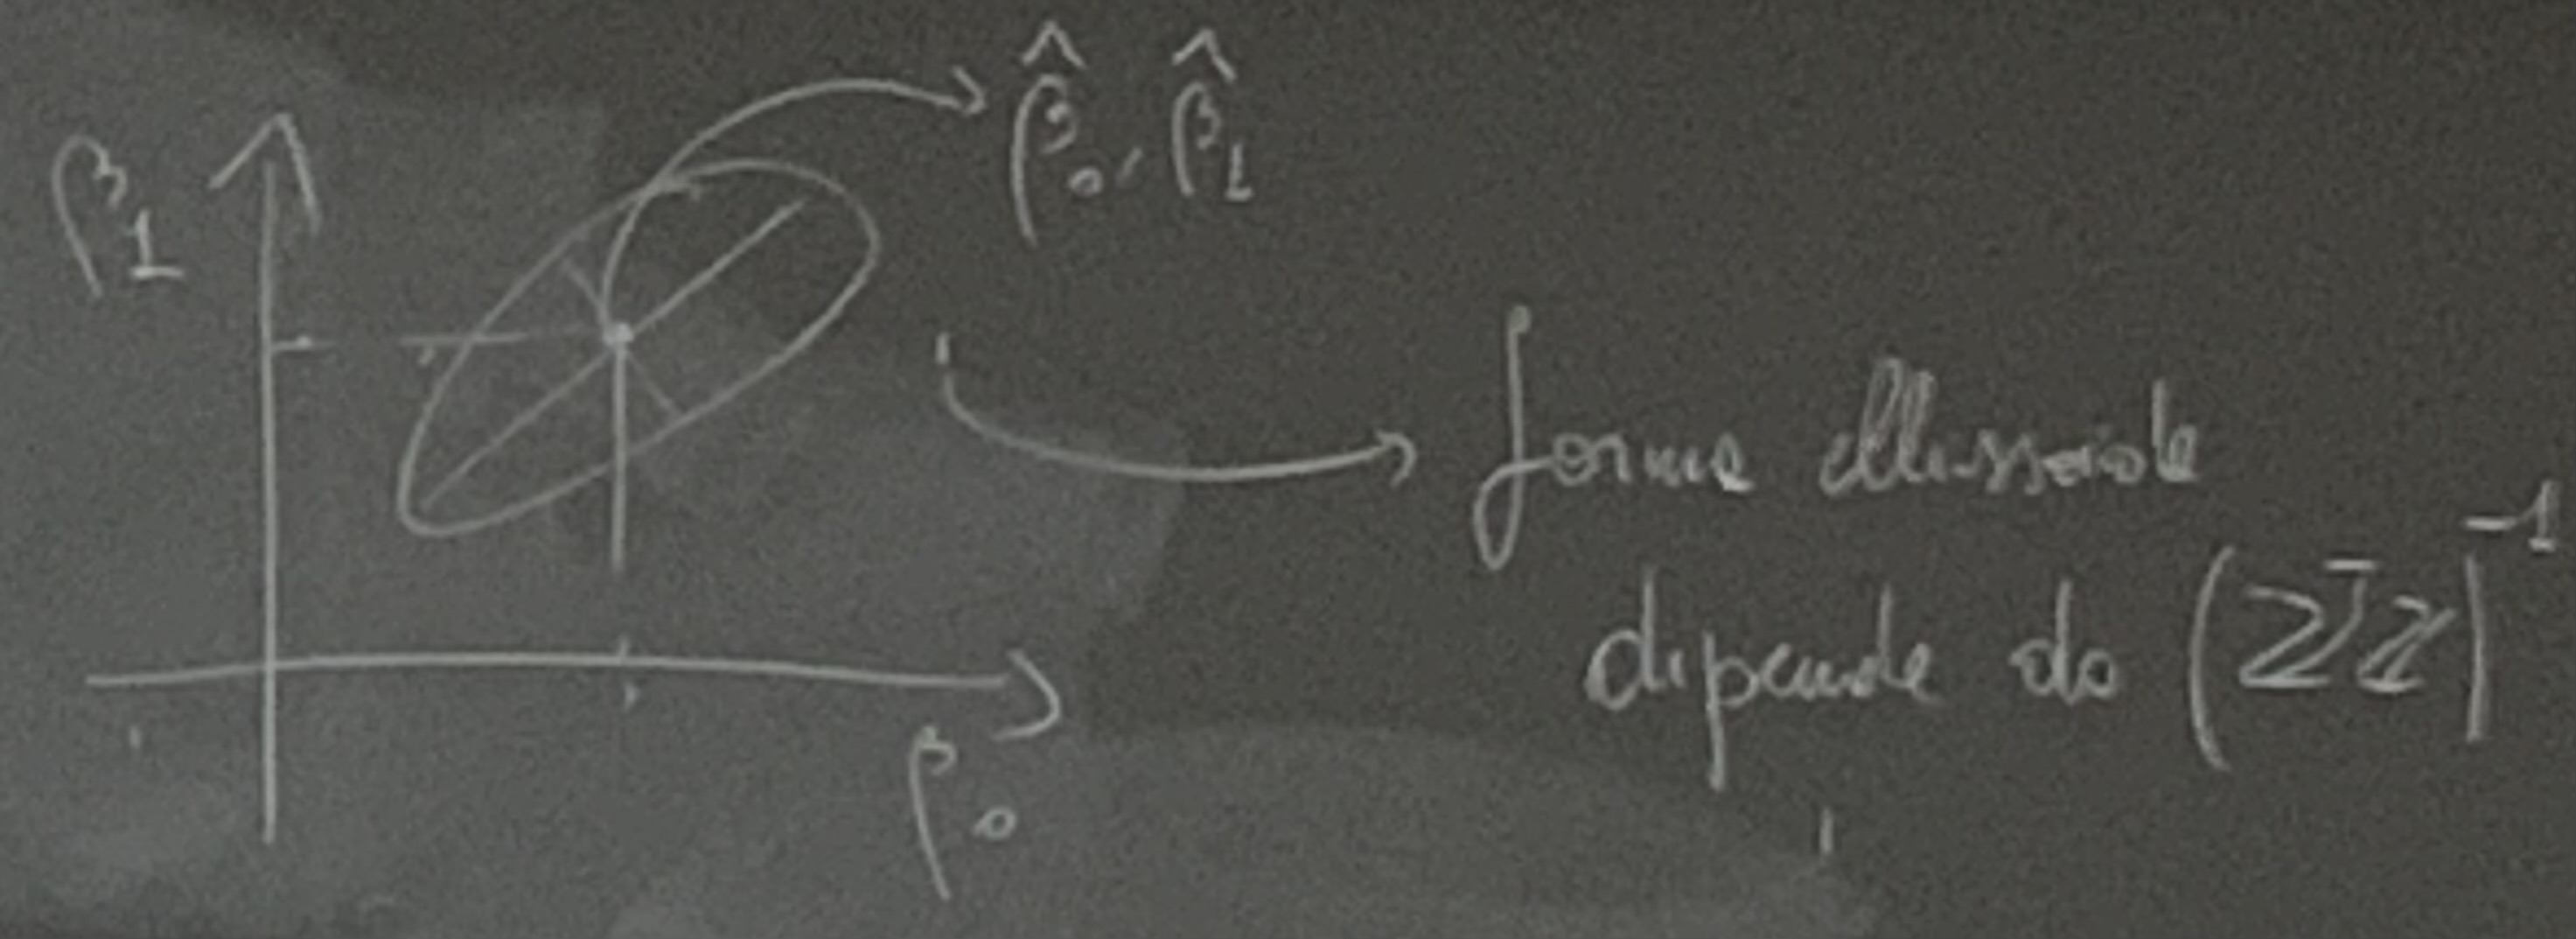 β̂₀, β̂₁
β₁
forma ellissoide
dipende da (ZᵀZ)⁻¹
β₀